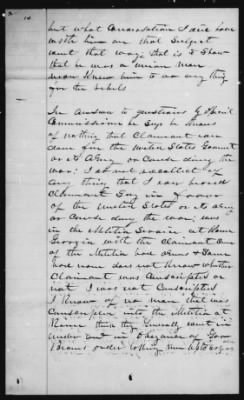 but what conversation I did have
with him on that subject
went that way; that is to show
that he was a union man
never knew him to do any thing
for the rebels
In answer to questions by Special
Commissioner he says he knows
of nothing that Claimant ever
done for the United States Govmt
or its Army or cause during the
war; I do not recollect of
any thing that I ever heard
Claimant say in favor
of the United States or its army
or cause during the war; was
in the Militia service at Rome
Georgia with the claimant one
of the Militia had arms & some
had none does not know whether
Claimant was conscripted or
not I was not conscripted
I know of no man that was
conscripted into the Militia at
Rome they generally went in
under and in obedience of Gov
Browns order